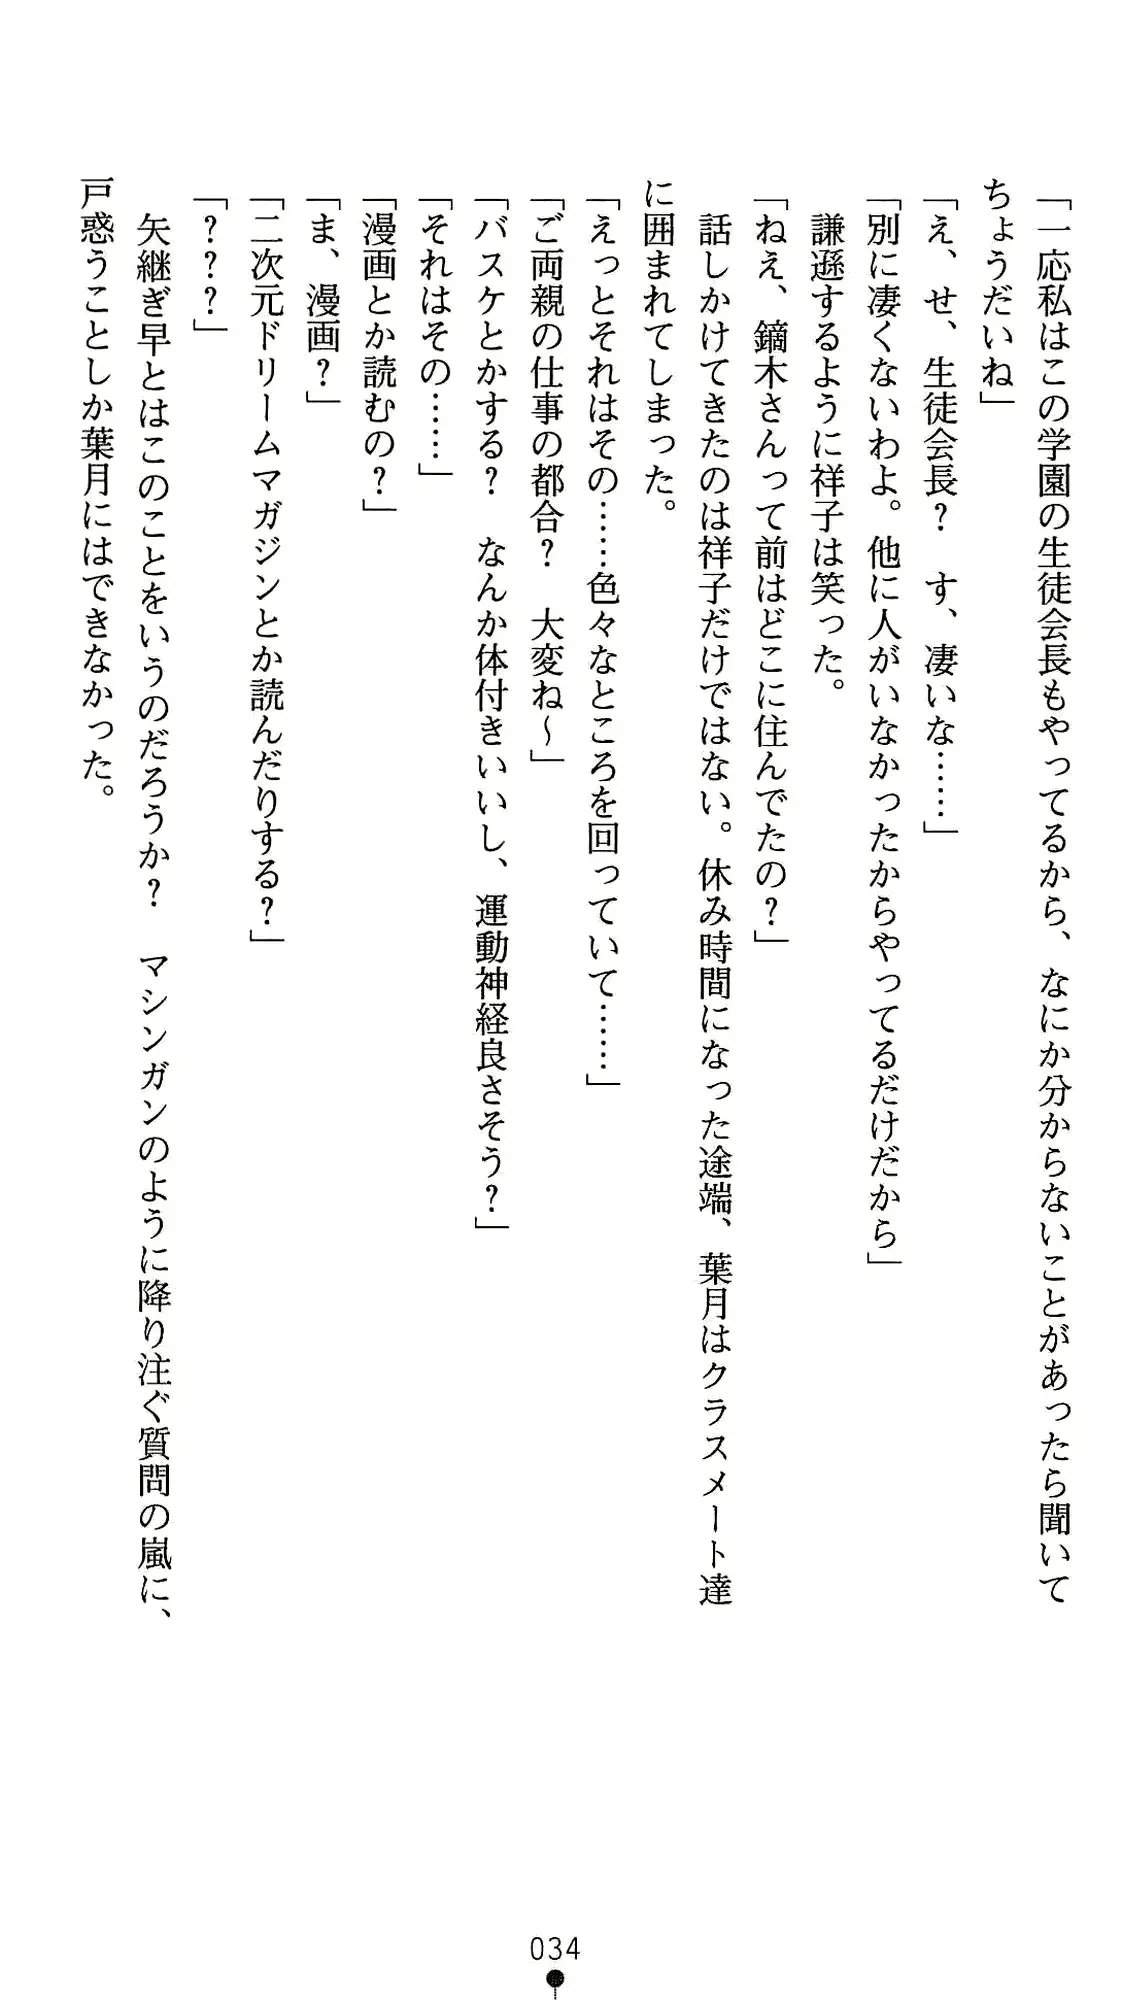 「一応私はこの学園の生徒会長もやってるから、なにか分からないことがあったら聞いて
ちょうだいね」
「え、せ、生徒会長？　す、凄いな……」
「別に凄くないわよ。他に人がいなかったからやってるだけだから」
　謙遜するように祥子は笑った。
「ねえ、鏑木さんって前はどこに住んでたの？」
　話しかけてきたのは祥子だけではない。休み時間になった途端、葉月はクラスメート達
に囲まれてしまった。
「えっとそれはその……色々なところを回っていて……」
「ご両親の仕事の都合？　大変ね～」
「バスケとかする？　なんか体付きいいし、運動神経良さそう？」
「それはその……」
「漫画とか読むの？」
「ま、漫画？」
「二次元ドリームマガジンとか読んだりする？」
「？？？」
　矢継ぎ早とはこのことをいうのだろうか？　マシンガンのように降り注ぐ質問の嵐に、
戸惑うことしか葉月にはできなかった。
034